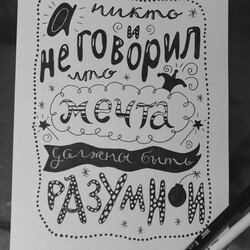 а никто
и
не говорил
что
мечта
должна быть
РАЗУМНОЙ